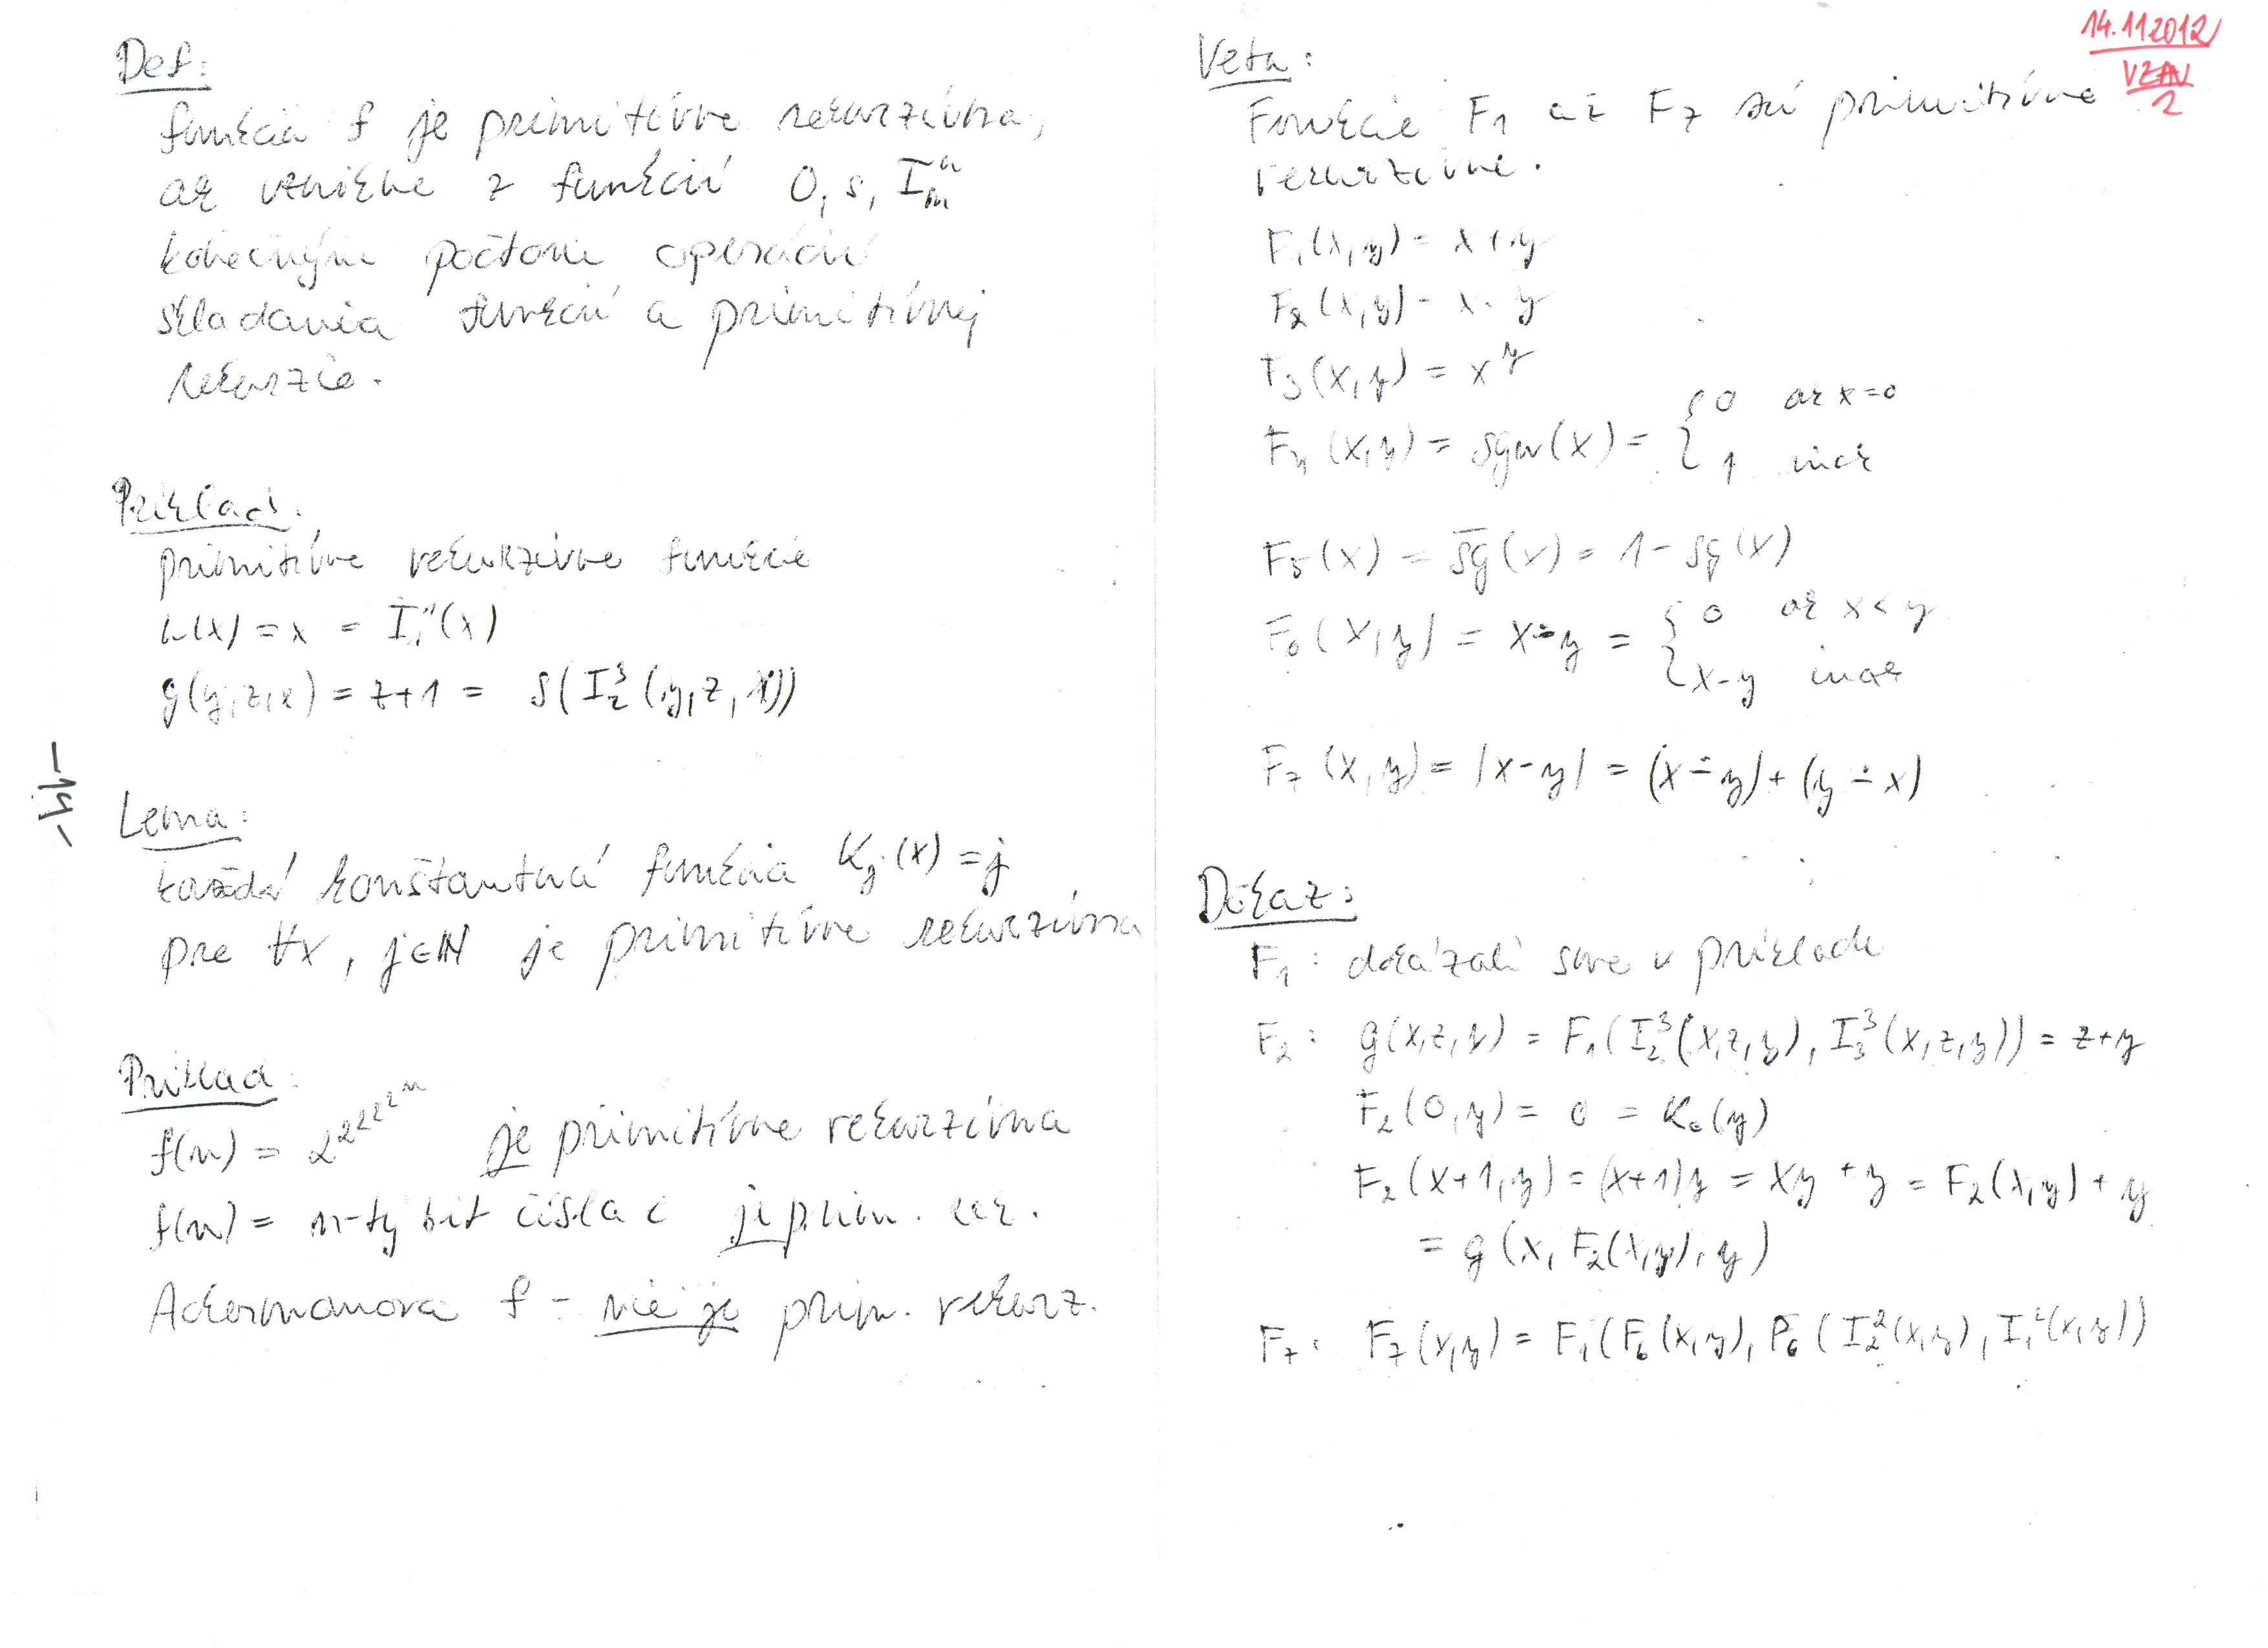 Def:
funkcia f je primitívne rekurzívna,
ak vznikne z funkcií 0, s, Iₘⁿ
konečným počtom operácií
skladania funkcií a primitívnej
rekurzie.
Príklad:
primitívne rekurzívne funkcie
h(x) = x = I₁¹(x)
g(y,z,x) = z+1 = s(I₂³(y,z,x))
Lema:
každá konštantná funkcia Kⱼ(x) = j
pre ∀x, j∈ℕ je primitívne rekurzívna
Príklad:
f(n) = 2^2^2^2^2^n je primitívne rekurzívna
f(n) = n-tý bit čísla je prim. rek.
Ackermanova f - nie je prim. rekurz.
-4-
14.11 2012
VZAV
2
Veta:
Funkcie F₁ až F₇ sú primitívne
rekurzívne.
F₁(x,y) = x + y
F₂(x,y) = x · y
F₃(x,y) = x^y
F₄(x,y) = sgn(x) = { 0 ak x=0
1 inak
F₅(x) = s̅g̅(x) = 1 - sg(x)
F₆(x,y) = x ∸ y = { 0 ak x < y
x-y inak
F₇(x,y) = |x-y| = (x ∸ y) + (y ∸ x)
Dôkaz:
F₁: dokázali sme v príklade
F₂: g(x,z,y) = F₁(I₂³(x,z,y), I₃³(x,z,y)) = z+y
F₂(0,y) = 0 = K₀(y)
F₂(x+1,y) = (x+1)y = xy + y = F₂(x,y) + y
= g(x, F₂(x,y), y)
F₇: F₇(x,y) = F₁(F₆(x,y), F₆(I₂²(x,y), I₁²(x,y))